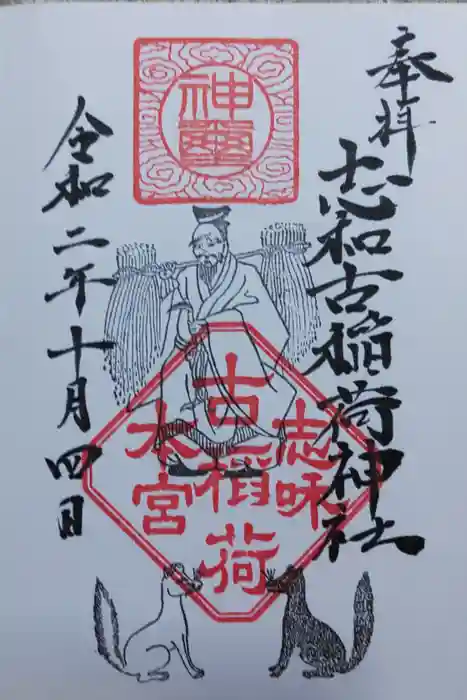 奉拝
志和古稲荷神社
令和二年十月四日
神璽
志咊
古稲荷
本宮